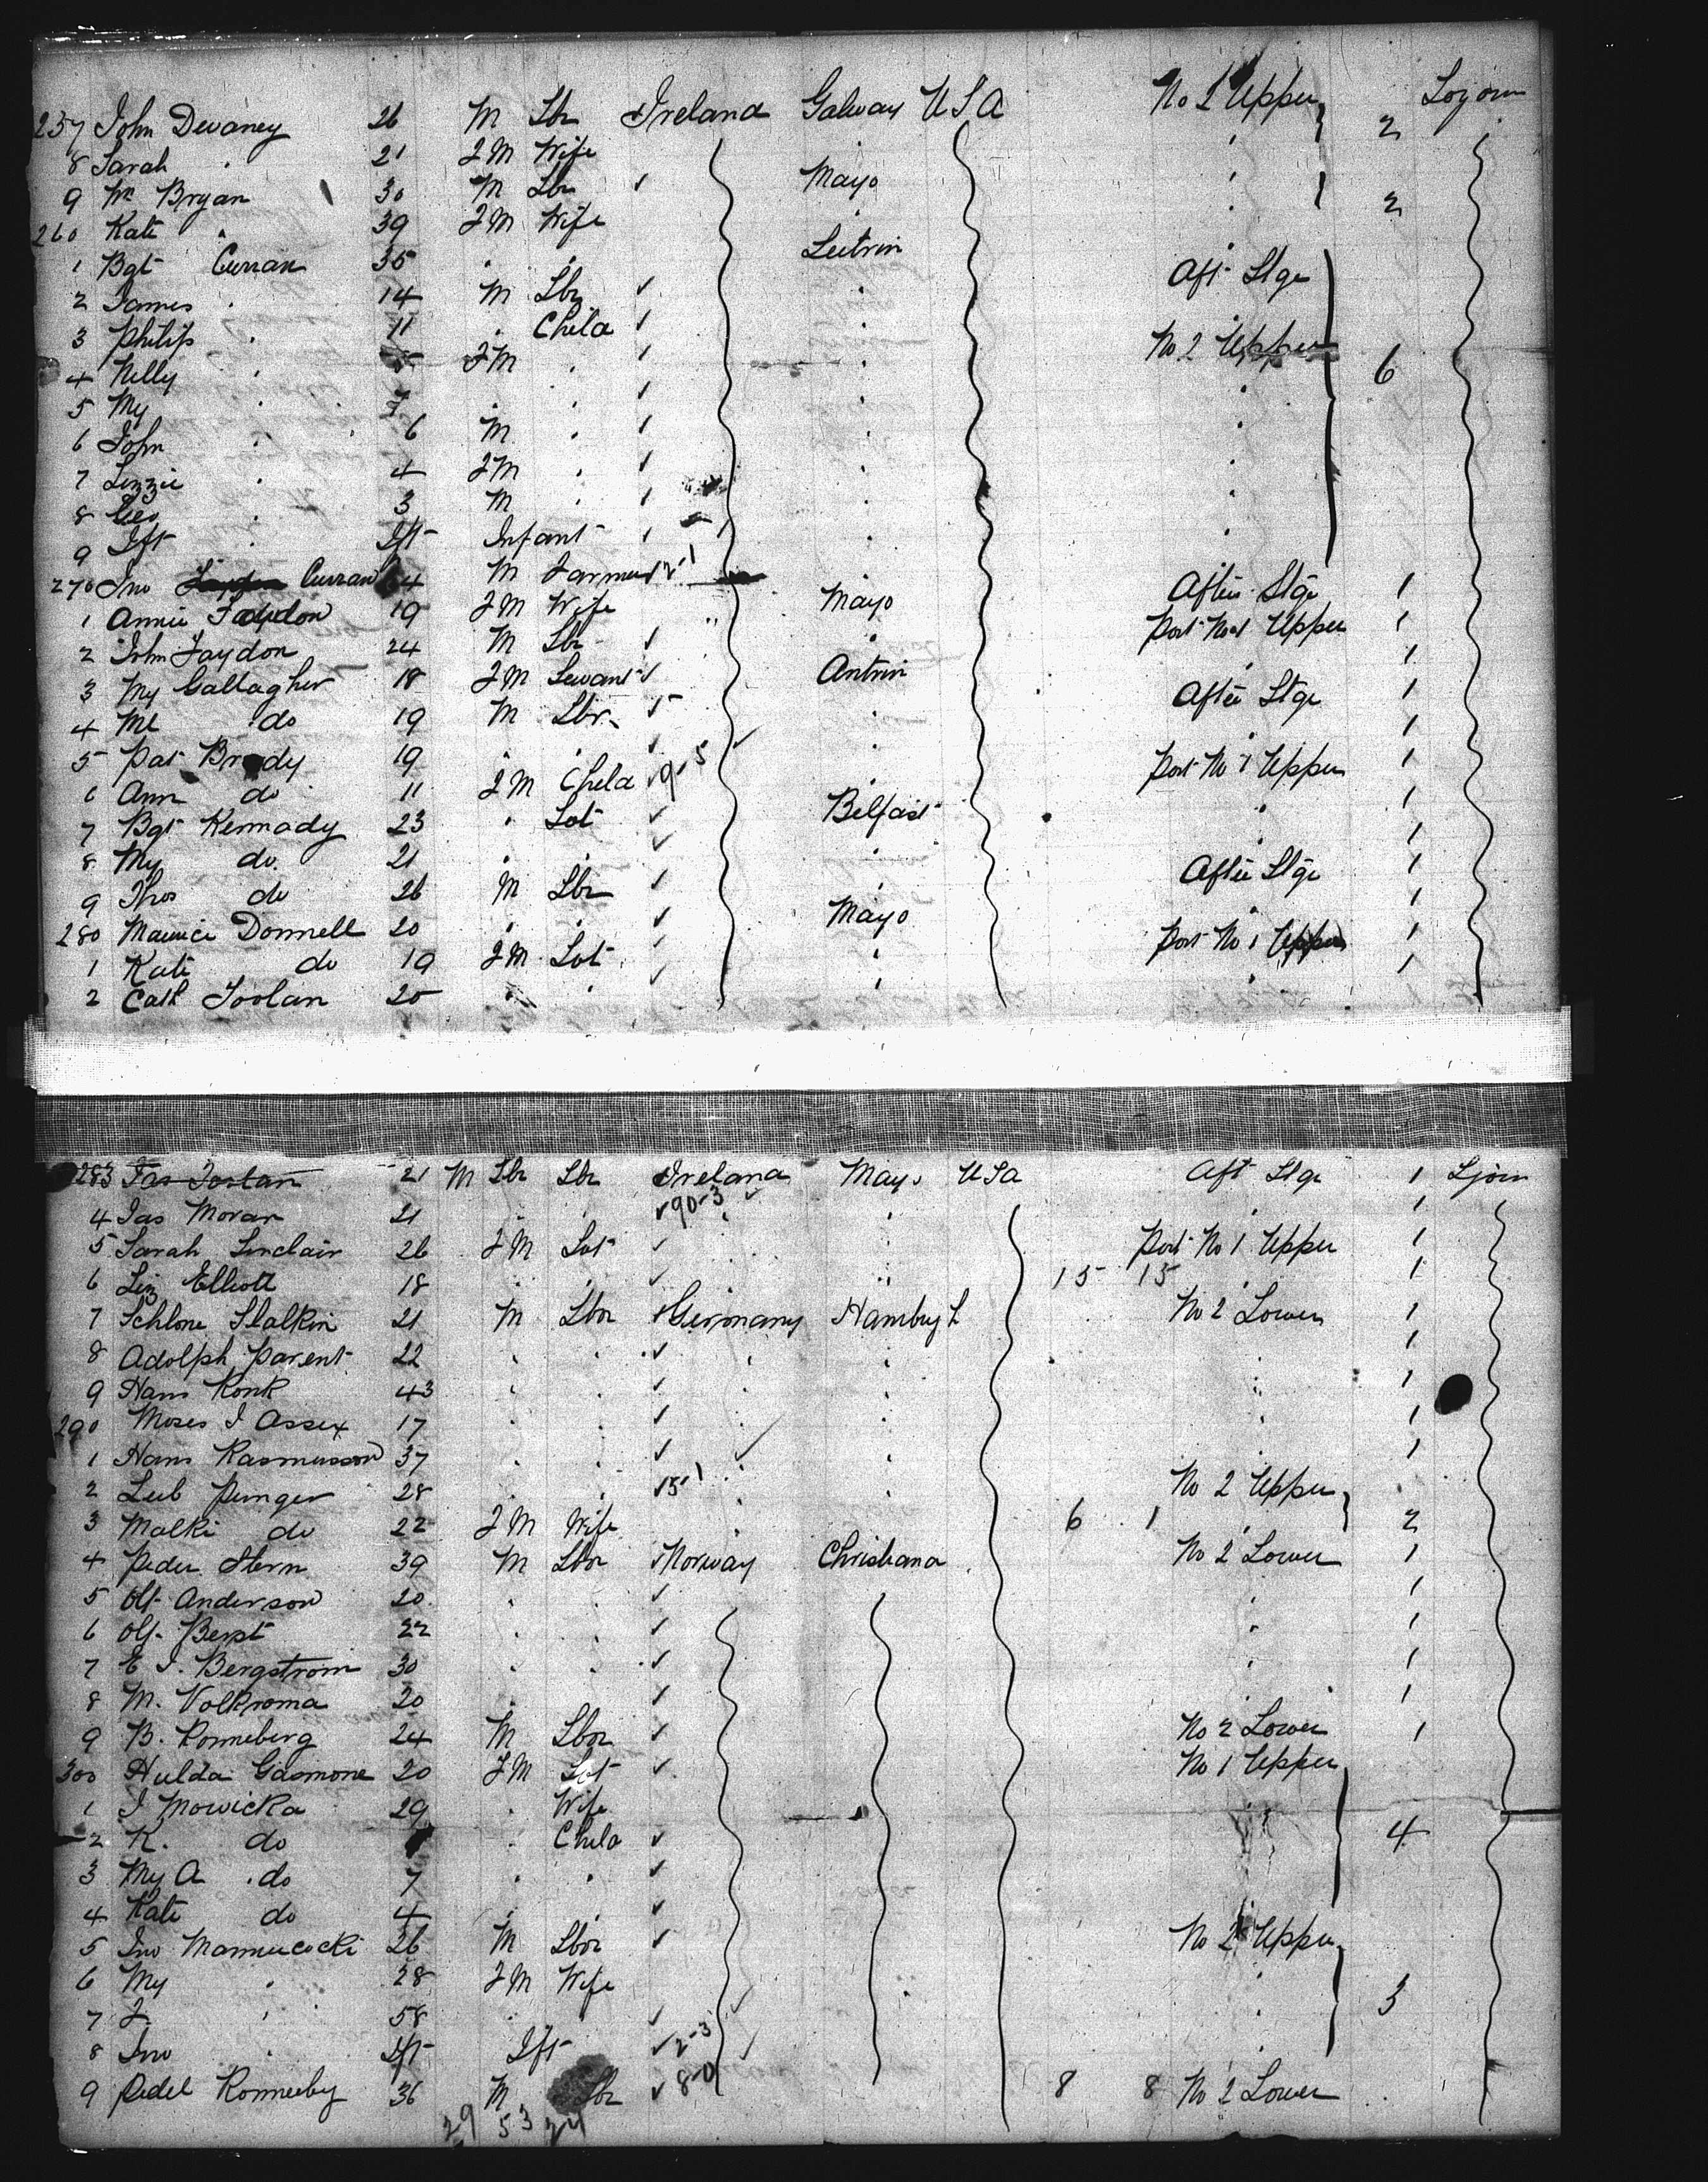 257 John Devaney 26 M Lbr Ireland Galway USA No 2 Upper 2 Sojourn
8 Sarah " 21 FM Wife "
9 Wm Bryan 30 M Lbr Mayo " 2
260 Kate " 39 FM Wife "
1 Bgt Curran 35 " " Leitrim Aft Stge
2 James " 14 M Lbr " "
3 Philip " 11 " Child " No 2 Upper
4 Nelly " FM " " 6
5 My " 7 " " " "
6 John " 6 M " " "
7 Lizzie " 4 FM " " "
8 Geo " 3 M " " "
9 Ift " Ift Infant " "
270 Jno Curran M Farmer After Stge 1
1 Annie Faydon 19 FM Wife Mayo Port No 1 Upper 1
2 John Faydon 24 M Lbr " " 1
3 My Gallagher 18 FM Servant Antrim After Stge 1
4 Ml do 19 M Lbr " " 1
5 Pat Brody 19 " " " Port No 1 Upper 1
6 Ann do 11 FM Child 9-5 " " 1
7 Bgt Kennady 23 " Sot Belfast " 1
8 My do 21 " " " After Stge 1
9 Thos do 26 M Lbr " " 1
280 Maurice Donnell 20 " " Mayo Port No 1 Upper 1
1 Kate do 19 FM Sot " " 1
2 Cath Toolan 20 " " " "
283 21 M Lbr Lbr Ireland Mayo USA Aft Stge 1 Sjourn
4 Jas Moran 21 " " 90-3 " " 1
5 Sarah Sinclair 26 FM Sot " Port No 1 Upper 1
6 Liz Elliott 18 " " " 15 15 " 1
7 Schlone Slalkin 21 M Lbor Germany Hambugh No 2 Lower 1
8 Adolph Parent 22 " " " " 1
9 Hans Konk 43 " " " " 1
290 Moses I Assex 17 " " " " 1
1 Hans Rasmusson 37 " " " " 1
2 Leib Punger 28 " " 15 1 " No 2 Upper
3 Malki do 22 FM Wife " 6 1 " 2
4 Peder Stern 39 M Lbor Norway Christiana No 2 Lower 1
5 Olf Anderson 20 " " " 1
6 Olf Berst 22 " " " 1
7 E J. Bergstrom 30 " " " 1
8 M. Volkroma 20 " " 1
9 B. Ronneberg 24 M Lbor No 2 Lower 1
300 Hulda Gasmone 20 FM Sot No 1 Upper
1 J Mowicka 29 " Wife "
2 K. do " Child " 4
3 My A do 7 " "
4 Kate do 4 " "
5 Jno 26 M Lbor No 2 Upper
6 My " 28 FM Wife "
7 J. " 58 " " 3
8 Jno " Ift Ift 2-3 "
9 Pedel Ronneby 36 M Lbr 8-0 8 8 No 2 Lower
29 53 24